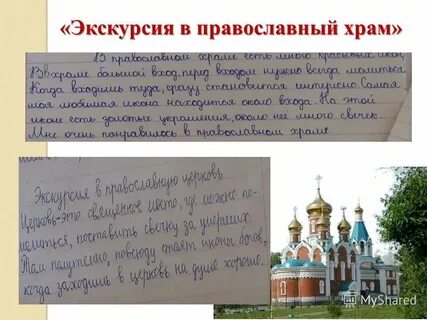 «Экскурсия в православный храм»
В православном храме есть много красивых икон,
В храме большой вход, перед входом нужно всегда молиться.
Когда входишь туда, сразу становится интересно Самая
моя любимая икона находится около входа. На этой
иконе есть золотые украшения, около нее много свечек.
Мне очень понравилось в православном храме.
Экскурсия в православную церковь.
Церковь-это священное место, где можно по-
молиться, поставить свечку за умерших.
Там полутемно, повсюду стоят иконы богов,
когда заходишь в церковь на душе хорошо.
MyShared